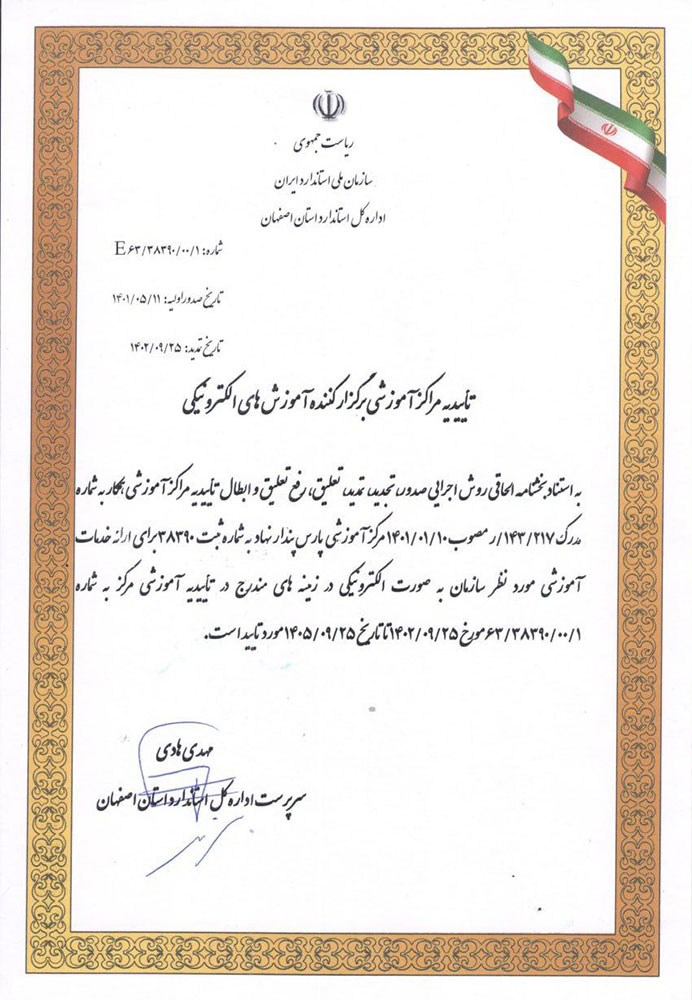 ریاست جمهوری
سازمان ملی استاندارد ایران
اداره کل استاندارد استان اصفهان
شماره: E ۶۳/۳۸۳۹۰/۰۰/۱
تاریخ صدور اولیه: ۱۴۰۱/۰۵/۱۱
تاریخ تمدید: ۱۴۰۲/۰۹/۲۵
تاییدیه مراکز آموزشی برگزار کننده آموزش های الکترونیکی
به استناد بخشنامه الحاقی روش اجرایی صدور، تجدید، تمدید، تعلیق، رفع تعلیق و ابطال تأییدیه مراکز آموزشی همکار به شماره
مدرک ۱۴۳/۲۱۷/ر مصوب ۱۴۰۱/۰۱/۱۰ مرکز آموزشی پارس پندار نهاد به شماره ثبت ۳۸۳۹۰ برای ارائه خدمات
آموزشی مورد نظر سازمان به صورت الکترونیکی در زمینه های مندرج در تأییدیه آموزشی مرکز به شماره
۶۳/۳۸۳۹۰/۰۰/۱ مورخ ۱۴۰۲/۰۹/۲۵ تا تاریخ ۱۴۰۵/۰۹/۲۵ مورد تایید است.
مهدی هادی
سرپرست اداره کل استاندارد استان اصفهان